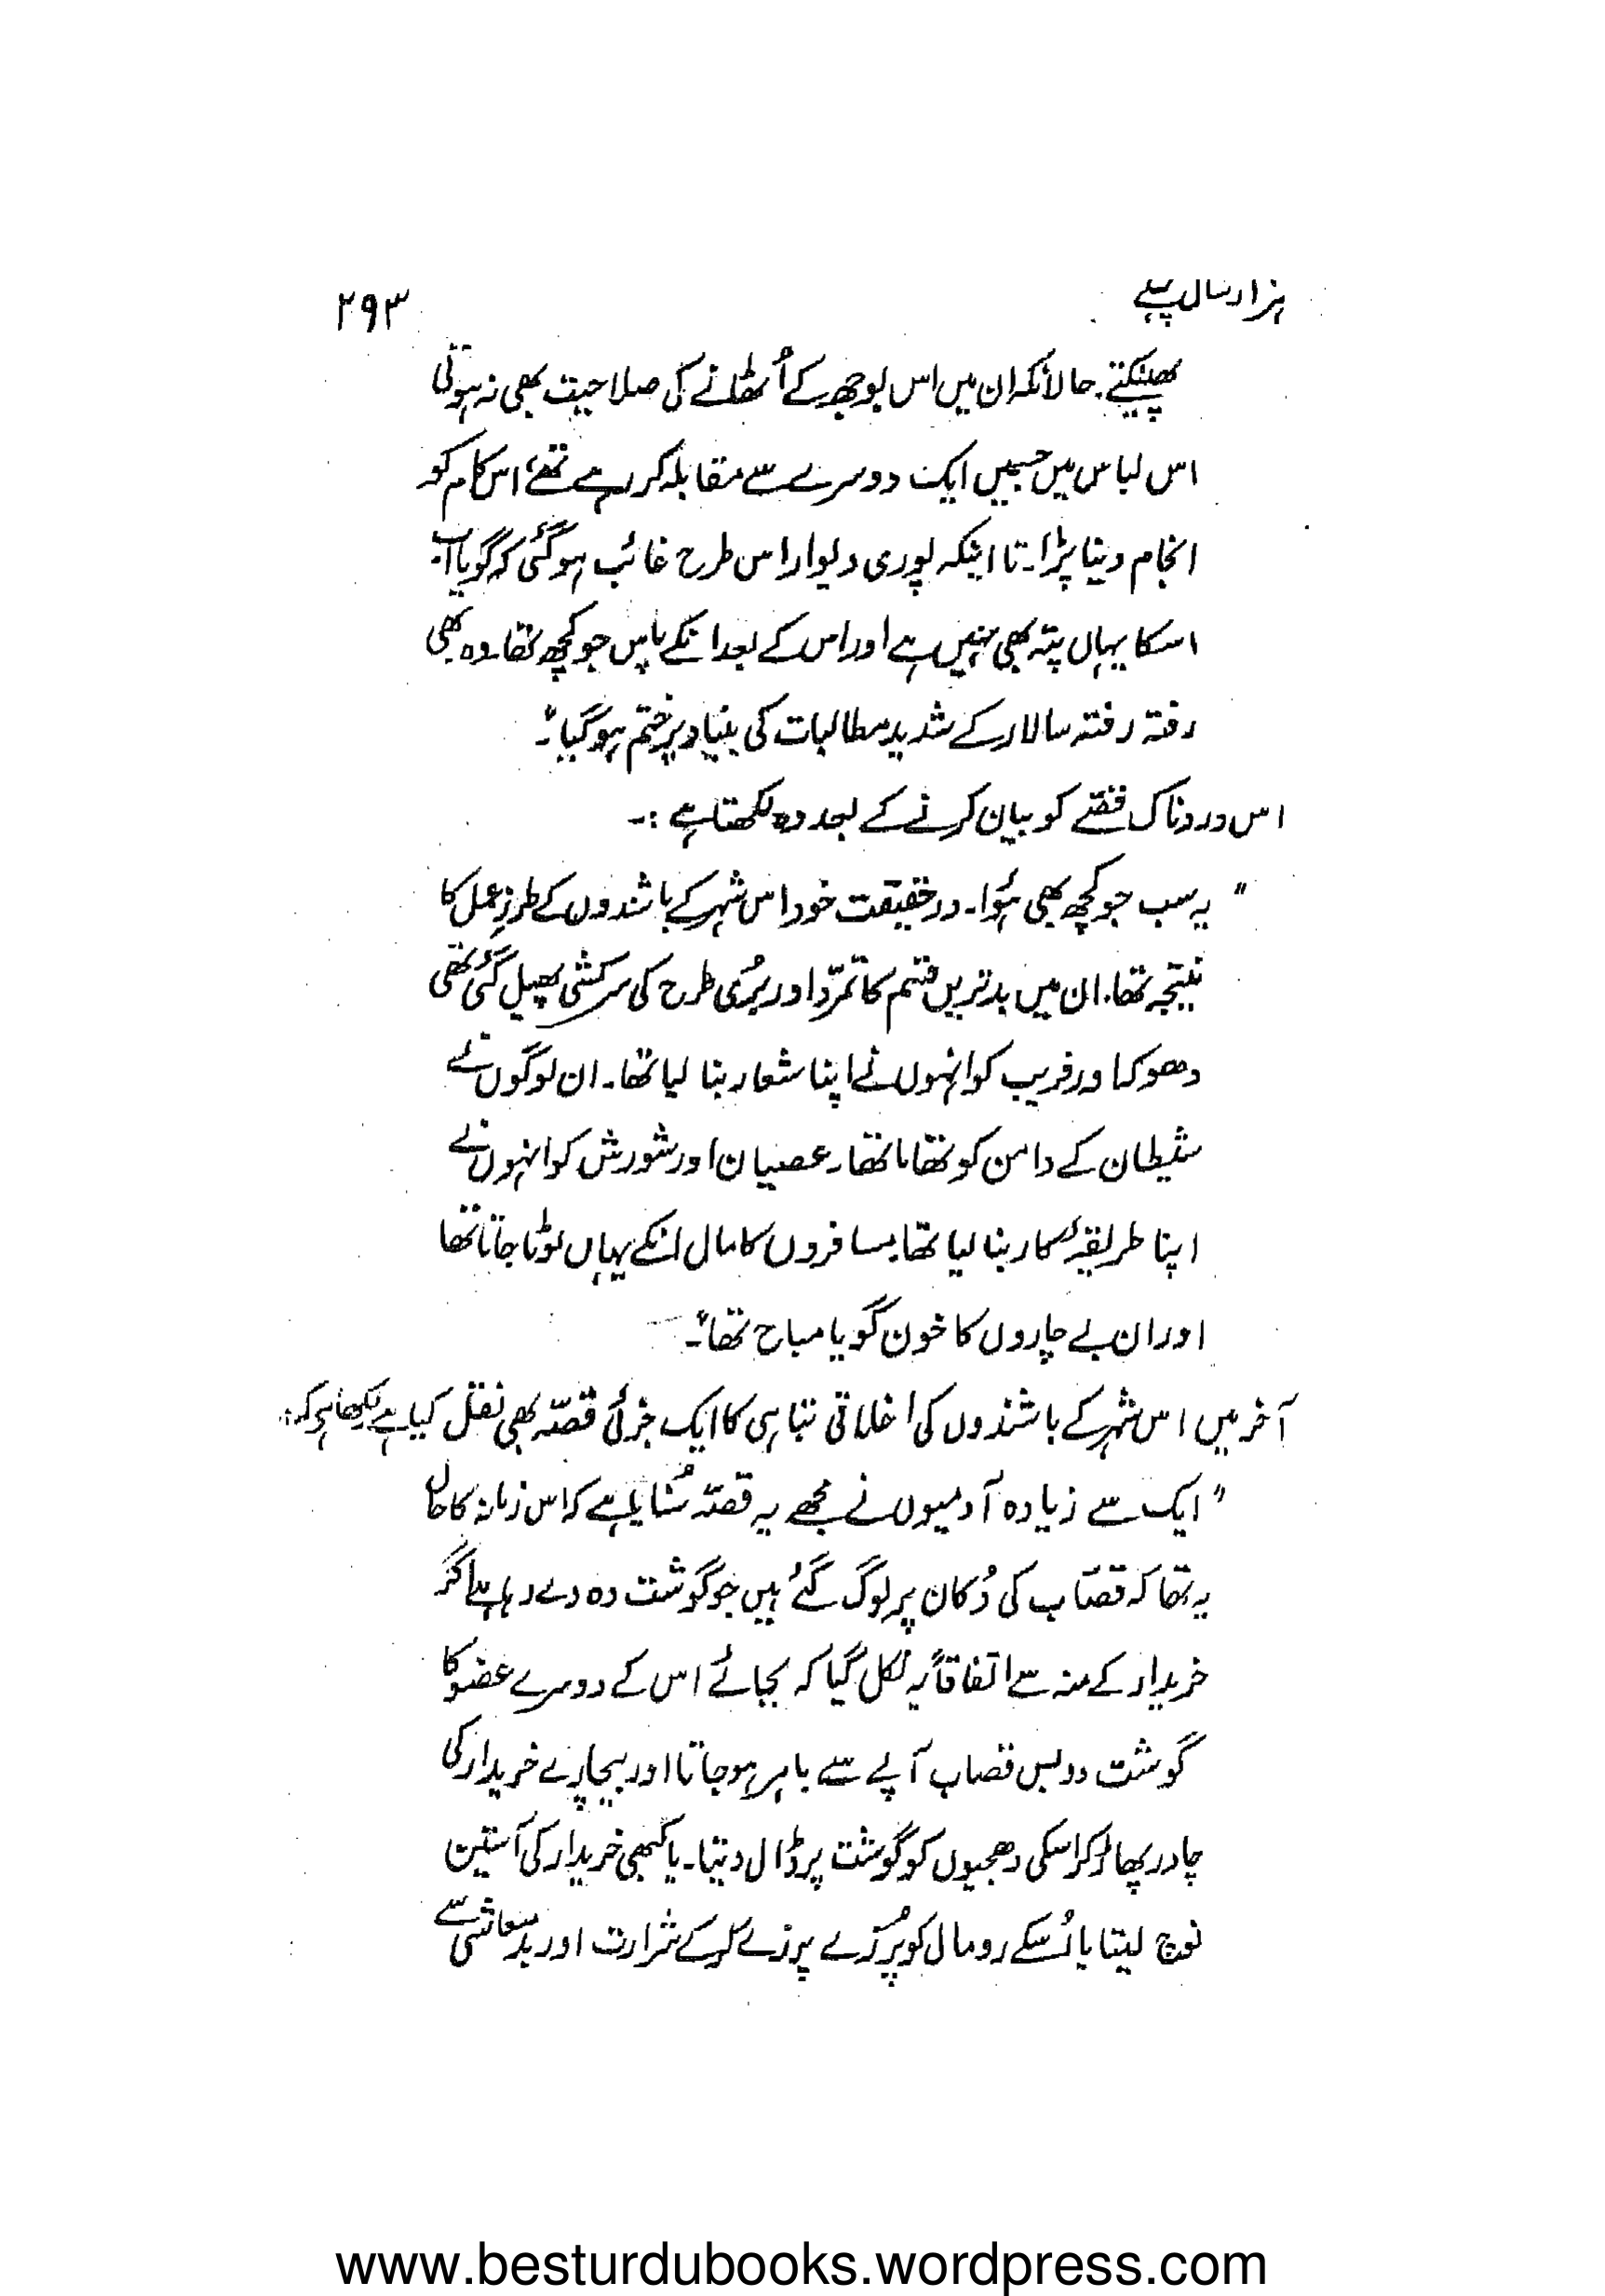 ہزار سال پہلے ۲۹۳
پھینکتے۔ حالانکہ ان میں اس بوجھ کے اُٹھانے کی صلاحیت بھی نہ ہوتی
اس لباس میں جسمیں ایک دوسرے سے مقابلہ کر رہے تھے، اس کام کو
انجام دینا پڑا۔ تا اینکہ پوری دیوار اس طرح غائب ہو گئی کہ گویا اب
اسکا یہاں پتہ بھی نہیں ہے اور اس کے بعد انکے پاس جو کچھ تھا۔ وہ بھی
رفتہ رفتہ سالار کے شدید مطالبات کی بنیاد پر ختم ہو گیا"۔
اس دردناک قصّے کو بیان کرنے کے بعد وہ لکھتا ہے :۔
" یہ سب جو کچھ بھی ہُوا۔ درحقیقت خود اس شہر کے باشندوں کے طرزِ عمل کا
نتیجہ تھا۔ ان میں بدترین قسم کا تمرّد اور بُری طرح کی سرکشی پھیل گئی تھی
دھوکا اور فریب کو انہوں نے اپنا شعار بنا لیا تھا۔ ان لوگوں نے
شیطان کے دامن کو تھاما تھا۔ عصیان اور شورش کو انہوں نے
اپنا طریقۂ کار بنا لیا تھا۔ مسافروں کا مال انکے یہاں لوٹا جاتا تھا
اور ان بے چاروں کا خون گویا مباح تھا"۔
آخر میں اس شہر کے باشندوں کی اخلاقی تباہی کا ایک جزئی قصّہ بھی نقل کیا ہے لکھا ہی کہ :
" ایک سے زیادہ آدمیوں نے مجھے یہ قصّہ سُنایا ہے کہ اس زمانہ کا حال
یہ تھا کہ قصّاب کی دُکان پر لوگ گئے ہیں جو گوشت وہ دے رہا ہے اگر
خریدار کے منہ سے اتفاقاً یہ نکل گیا کہ بجائے اس کے دوسرے عضو کا
گوشت دو بس قصاب آپے سے باہر ہو جاتا اور بیچارے خریدار کی
چادر پھاڑ کر اسکی دھجیوں کو گوشت پر ڈال دیتا۔ یا کبھی خریدار کی آستین
نوچ لیتا یا اُسکے رومال کو پُرزے پرزے کر کے شرارت اور بدمعاشی سے
www.besturdubooks.wordpress.com